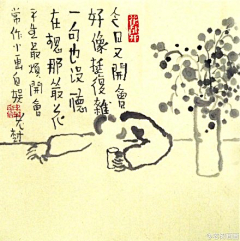 今日又開會
好像挺復雜
一句也沒聽
在 那 花
平生最煩開會
常作小畫自娛 老樹